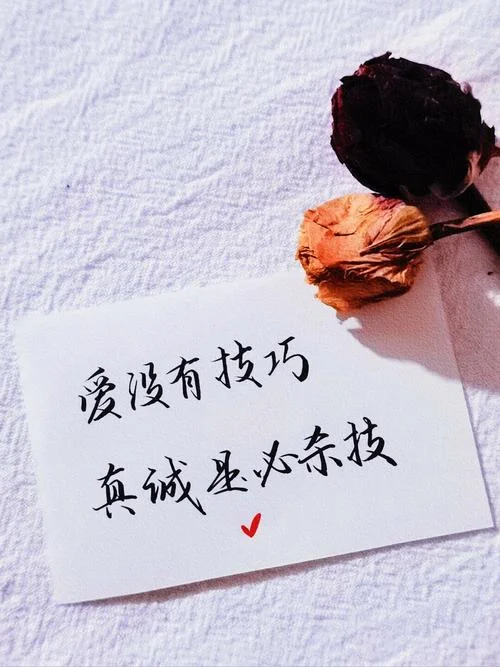 爱没有技巧
真诚是必杀技